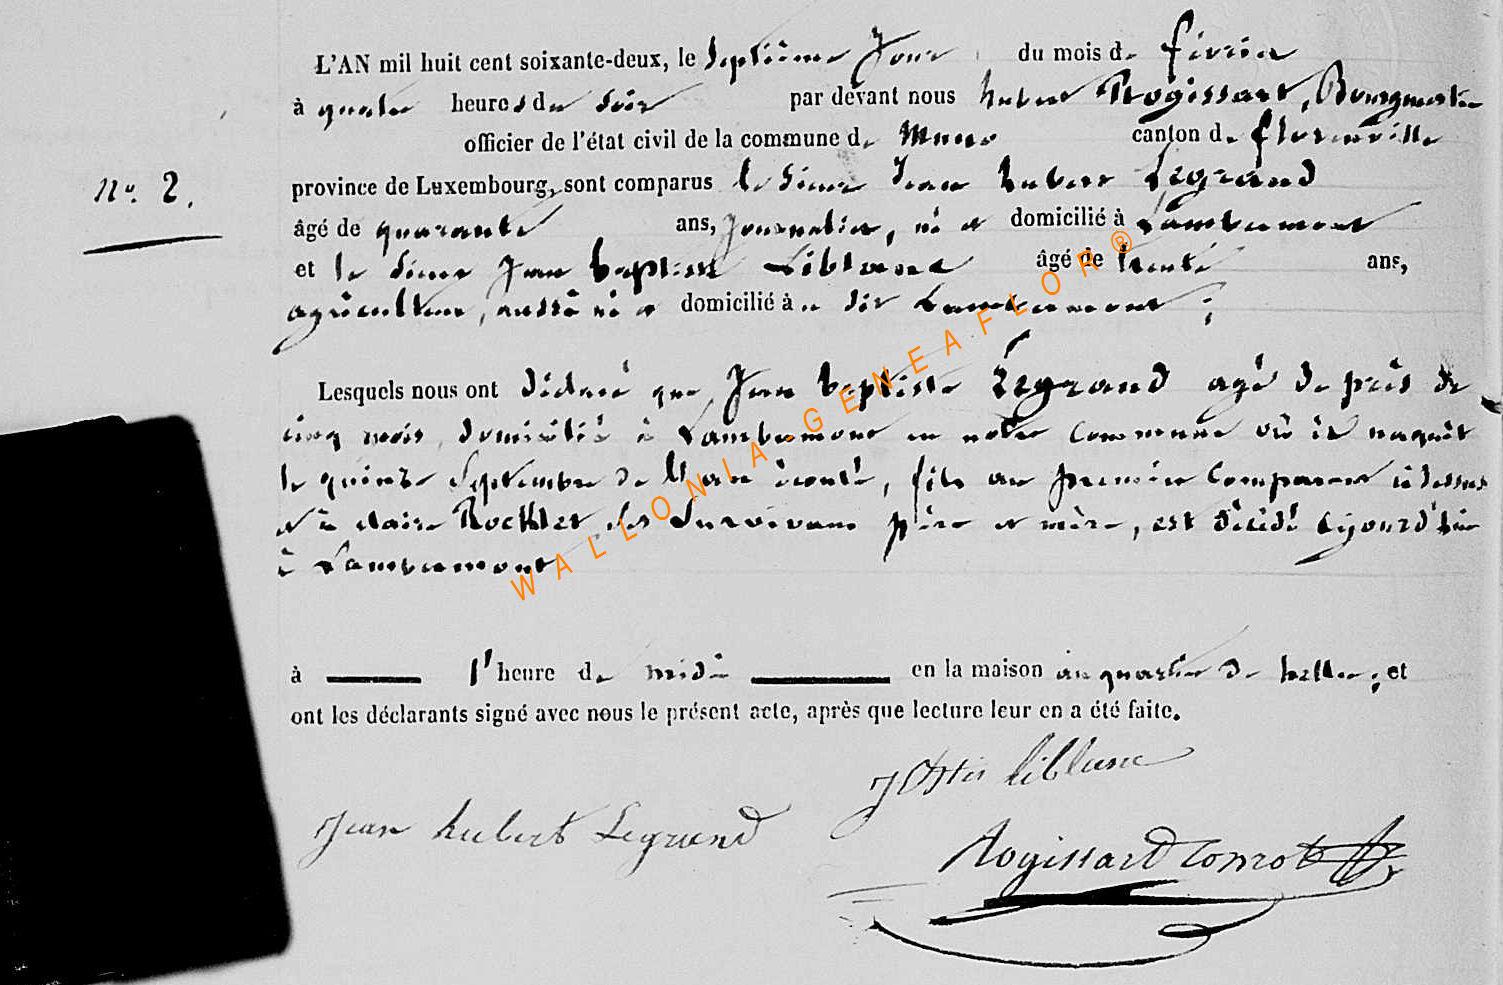 L'AN mil huit cent soixante-deux, le septième Jour du mois de février
à quatre heures du soir par devant nous hubert Rogissart, Bourgmestre
officier de l'état civil de la commune de Muno canton de florenville
N°. 2. province de Luxembourg, sont comparus le sieur Jean hubert Legrand
âgé de quarante ans, journalier, né et domicilié à Lambermont
et le sieur Jean baptiste Leblanc âgé de trente ans,
agriculteur, aussi né et domicilié à dit Lambermont ;
Lesquels nous ont déclaré que Jean baptiste Legrand agé de près de
cinq mois, domicilié à Lambermont en notre commune où il naquit
le quinze septembre de l'an écoulé, fils au premier comparant ci dessus
et à claire les survivans père et mère, est décédé cejourd'hui
à Lambermont
à l'heure de midi en la maison au quartier de ; et
ont les déclarants signé avec nous le présent acte, après que lecture leur en a été faite.
leblanc
Jean hubert Legrand
Rogissart Conrot
WALLONIA-GENEAFLOR®